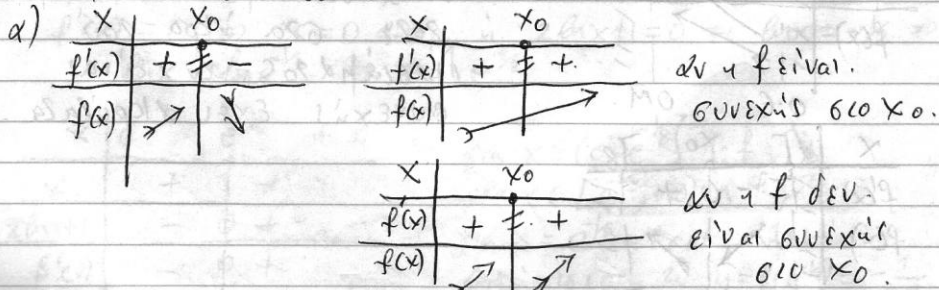 α)
x x₀
f'(x) + -
f(x)
x x₀
f'(x) + +
f(x)
αν η f είναι.
συνεχής στο x₀.
x x₀
f'(x) + +
f(x)
αν η f δεν.
είναι συνεχής
στο x₀.